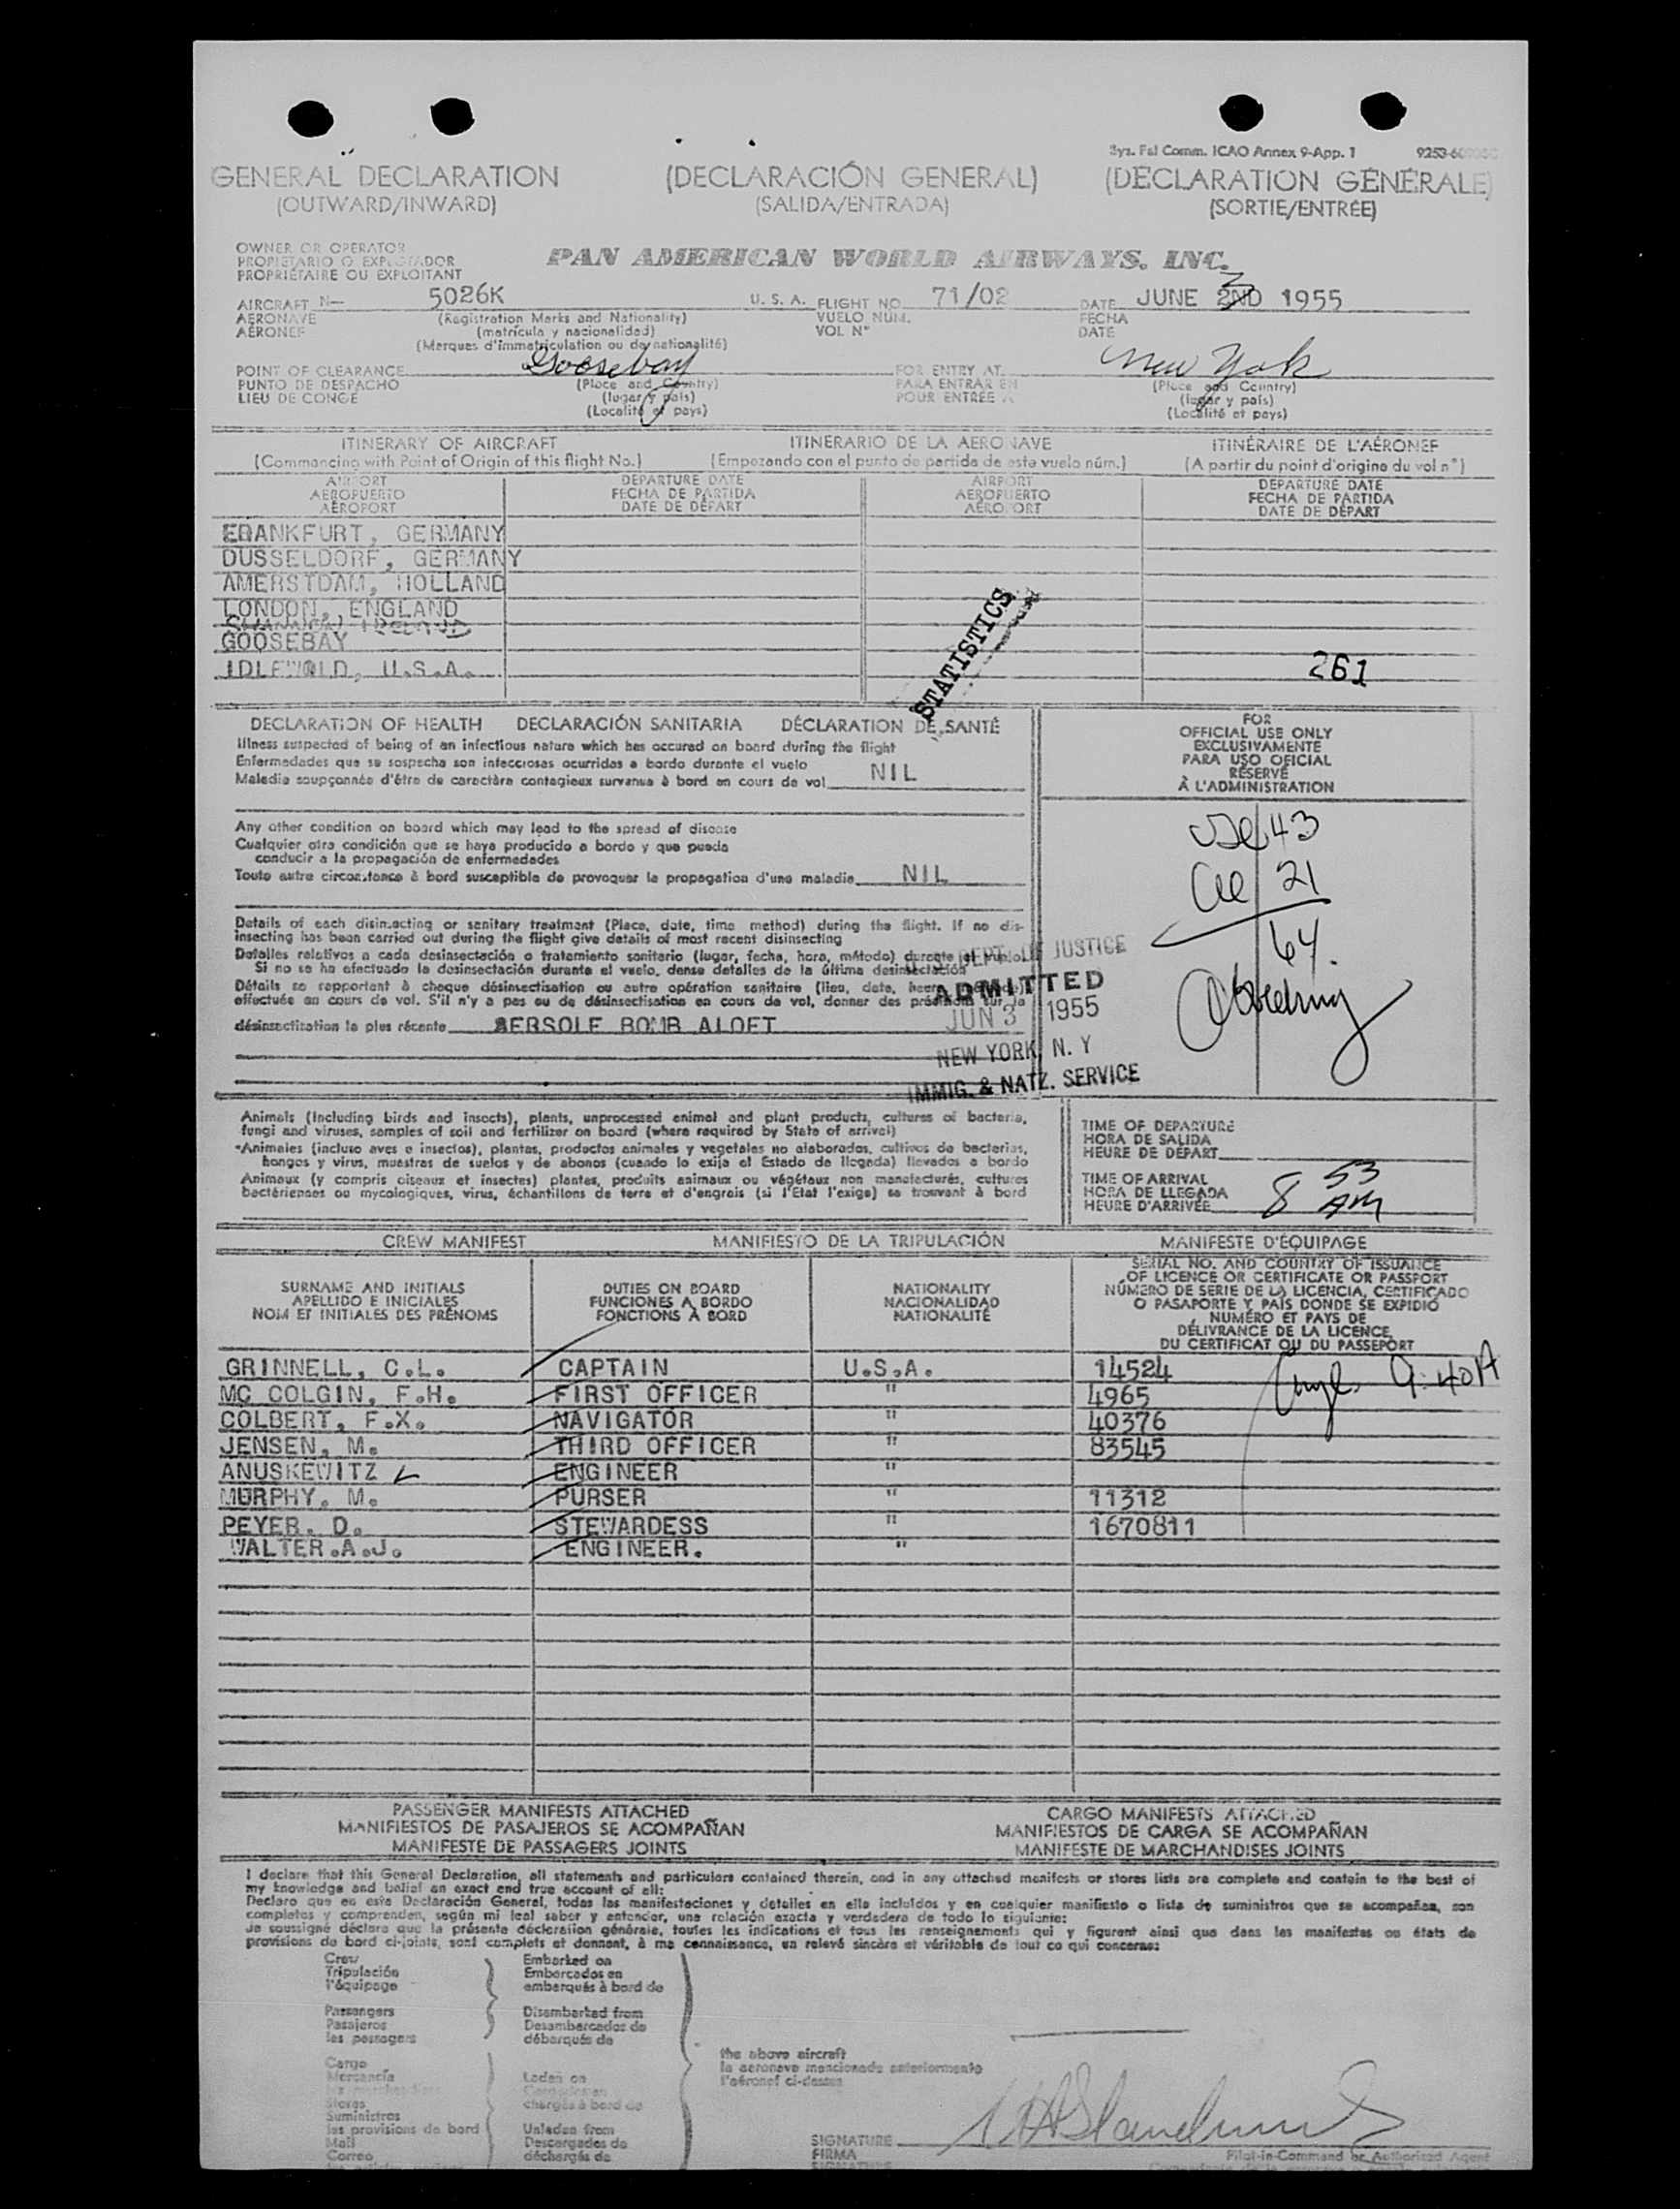 Sys. Fal Comm. ICAO Annex 9-App. 1
GENERAL DECLARATION (DECLARACIÓN GENERAL) (DÉCLARATION GÉNÉRALE)
(OUTWARD/INWARD) (SALIDA/ENTRADA) (SORTIE/ENTRÉE)
OWNER OR OPERATOR
PROPIETARIO O EXPLOTADOR
PROPRIÉTAIRE OU EXPLOITANT
PAN AMERICAN WORLD AIRWAYS, INC.
AIRCRAFT N— 5026K U. S. A. FLIGHT NO. 71/02 DATE JUNE 2ND 3 1955
AERONAVE (Registration Marks and Nationality) VUELO NÚM. FECHA
AÉRONEF (matrícula y nacionalidad) VOL N° DATE
(Marques d'immatriculation ou de nationalité)
POINT OF CLEARANCE Goosebay FOR ENTRY AT New York
PUNTO DE DESPACHO (Place and Country) PARA ENTRAR EN (Place and Country)
LIEU DE CONGE (lugar y país) POUR ENTRÉE A (lugar y país)
(Localité et pays) (Localité et pays)
ITINERARY OF AIRCRAFT ITINERARIO DE LA AERONAVE ITINÉRAIRE DE L'AÉRONEF
(Commencing with Point of Origin of this flight No.) (Empezando con el punto de partida de este vuelo núm.) (A partir du point d'origine du vol n°)
AIRPORT DEPARTURE DATE AIRPORT DEPARTURE DATE
AEROPUERTO FECHA DE PARTIDA AEROPUERTO FECHA DE PARTIDA
AÉROPORT DATE DE DÉPART AÉROPORT DATE DE DÉPART
FRANKFURT, GERMANY
DUSSELDORF, GERMANY
AMERSTDAM, HOLLAND
LONDON, ENGLAND
GOOSEBAY
IDLEWILD, U.S.A.
STATISTICS
261
DECLARATION OF HEALTH DECLARACIÓN SANITARIA DÉCLARATION DE SANTÉ
Illness suspected of being of an infectious nature which has occured on board during the flight
Enfermedades que se sospecha son infecciosas ocurridas a bordo durante el vuelo
Maladie soupçonnée d'être de caractère contagieux survenue à bord en cours de vol NIL
Any other condition on board which may lead to the spread of disease
Cualquier otra condición que se haya producido a bordo y que pueda
conducir a la propagación de enfermedades
Toute autre circonstance à bord susceptible de provoquer la propagation d'une maladie NIL
Details of each disinsecting or sanitary treatment (Place, date, time method) during the flight. If no dis-
insecting has been carried out during the flight give details of most recent disinsecting
Detalles relativos a cada desinsectación o tratamiento sanitario (lugar, fecha, hora, método) durante el vuelo.
Si no se ha efectuado la desinsectación durante el vuelo, dense detalles de la última desinsectación
Détails se rapportant à chaque désinsectisation ou autre opération sanitaire (lieu, date, heure
effectuée au cours de vol. S'il n'y a pas eu de désinsectisation en cours de vol, donner des précisions sur la
désinsectisation la plus récente AERSOLE BOMB ALOFT
U.S. DEPT. OF JUSTICE
ADMITTED
JUN 3 1955
NEW YORK, N. Y
IMMIG. & NATZ. SERVICE
FOR
OFFICIAL USE ONLY
EXCLUSIVAMENTE
PARA USO OFICIAL
RÉSERVÉ
À L'ADMINISTRATION
43
21
64
Animals (Including birds and insects), plants, unprocessed animal and plant products, cultures of bacteria,
fungi and viruses, samples of soil and fertilizer on board (where required by State of arrival)
Animales (incluso aves e insectos), plantas, productos animales y vegetales no elaborados, cultivos de bacterias,
hongos y virus, muestras de suelos y de abonos (cuando lo exija el Estado de llegada) llevados a bordo
Animaux (y compris oiseaux et insectes) plantes, produits animaux ou végétaux non manufacturés, cultures
bactériennes ou mycologiques, virus, échantillons de terre et d'engrais (si l'Etat l'exige) se trouvant à bord
TIME OF DEPARTURE
HORA DE SALIDA
HEURE DE DÉPART
TIME OF ARRIVAL
HORA DE LLEGADA
HEURE D'ARRIVÉE 8 53 AM
CREW MANIFEST MANIFIESTO DE LA TRIPULACIÓN MANIFESTE D'ÉQUIPAGE
SURNAME AND INITIALS
APELLIDO E INICIALES
NOM ET INITIALES DES PRÉNOMS
DUTIES ON BOARD
FUNCIONES A BORDO
FONCTIONS À BORD
NATIONALITY
NACIONALIDAD
NATIONALITÉ
SERIAL NO. AND COUNTRY OF ISSUANCE
OF LICENCE OR CERTIFICATE OR PASSPORT
NÚMERO DE SERIE DE LA LICENCIA, CERTIFICADO
O PASAPORTE Y PAÍS DONDE SE EXPIDIÓ
NUMÉRO ET PAYS DE
DÉLIVRANCE DE LA LICENCE,
DU CERTIFICAT OU DU PASSEPORT
GRINNELL, C.L. CAPTAIN U.S.A. 14524 9:40A
MC COLGIN, F.H. FIRST OFFICER " 4965
COLBERT, F.X. NAVIGATOR " 40376
JENSEN, M. THIRD OFFICER " 83545
ANUSKEWITZ ENGINEER "
MURPHY, M. PURSER " 11312
PEYER, D. STEWARDESS " 1670811
WALTER.A.J. ENGINEER. "
PASSENGER MANIFESTS ATTACHED CARGO MANIFESTS ATTACHED
MANIFIESTOS DE PASAJEROS SE ACOMPAÑAN MANIFIESTOS DE CARGA SE ACOMPAÑAN
MANIFESTE DE PASSAGERS JOINTS MANIFESTE DE MARCHANDISES JOINTS
I declare that this General Declaration, all statements and particulars contained therein, and in any attached manifests or stores lists are complete and contain to the best of
my knowledge and belief an exact end true account of all:
Declaro que en esta Declaración General, todas las manifestaciones y detalles en ella incluídos y en cualquier manifiesto o lista de suministros que se acompañan, son
completos y comprenden, según mi leal saber y entender, una relación exacta y verdadera de todo lo siguiente:
Je soussigné déclare que la présente déclaration générale, toutes les indications et tous les renseignements qui y figurent ainsi que dans les manifestes ou états de
provisions de bord ci-joints, sont complets et donnent, à ma connaissance, un relevé sincère et véritable de tout ce qui concerne:
Crew Embarked on
Tripulación Embarcados en
l'équipage embarqués à bord de
Passengers Disembarked from
Pasajeros Desembarcados de
les passagers débarqués de
the above aircraft
la aeronave mencionada anteriormente
l'aéronef ci-dessus
Cargo
Mercancía Laden on
les marchandises Cargados en
Stores chargés à bord de
Suministros
les provisions de bord Unladen from
Mail Descargados de
Correo déchargés de
SIGNATURE
FIRMA Pilot-in-Command or Authorized Agent